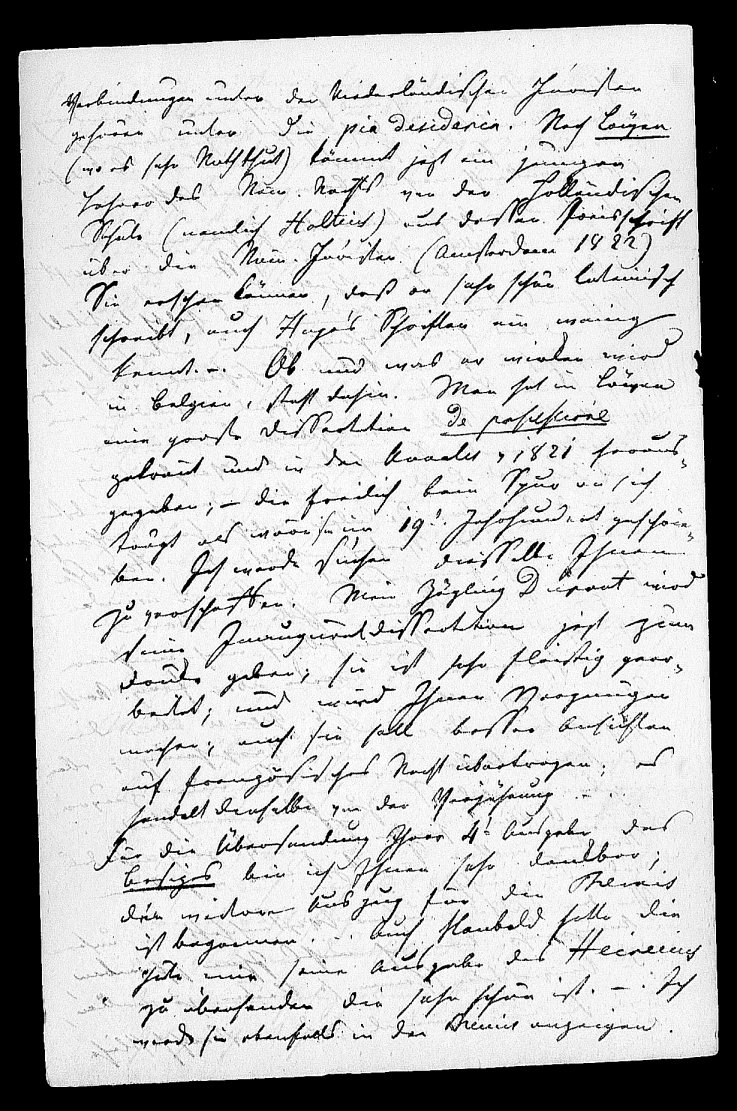 Verbindungen unter den Niederländischen Juristen
gehören unter die pia desideria. Nach Löwen
(wo es sehr Noth thut) kömmt jetzt ein junger
Lehrer des Röm. Rechts von der Holländischen
Schule (nemlich Holtius) aus dessen Preisschrift
über die Röm. Juristen (Amsterdam 1822)
Sie ersehen können, daß er sehr schön lateinisch
schreibt, auch Hugo's Schriften ein wenig
kennt. – Ob und was er wirken wird
in Belgien, steht dahin. Man hat in Löwen
eine große Dissertation de possessione
gekrönt und in den Annales v 1821 heraus-
gegeben, – die freilich kein Spur an sich
trägt als wäre sie im 19t. Jahrhundert geschrie-
ben. Ich werde suchen dieselbe Ihnen
zu verschaffen. Mein Zögling Dupret wird
seine Inauguraldissertation jetzt zum
Drucke geben; sie ist sehr fleissig gear-
beitet, und wird Ihnen Vergnügen
machen; auch sie soll bessere Ansichten
auf französisches Recht übertragen; es
handelt dieselbe von der Verjährung –.
Für die Übersendung Ihrer 4t Ausgabe des
Besizes bin ich Ihnen sehr dankbar;
der weitere Auszug für die Themis
ist begonnen. . Auch Haubold hatte die
Güte mir seine Ausgabe des Heineccius
zu übersenden die sehr schön ist. – . Ich
werde sie ebenfalls in der Themis anzeigen.